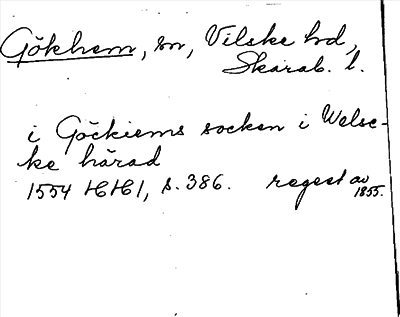 Gökhem, sn, Vilske hd,
Skarab. l.
i Göckiems socken i Welse-
ke härad
1554 HH1, s. 386. regest av
1855.